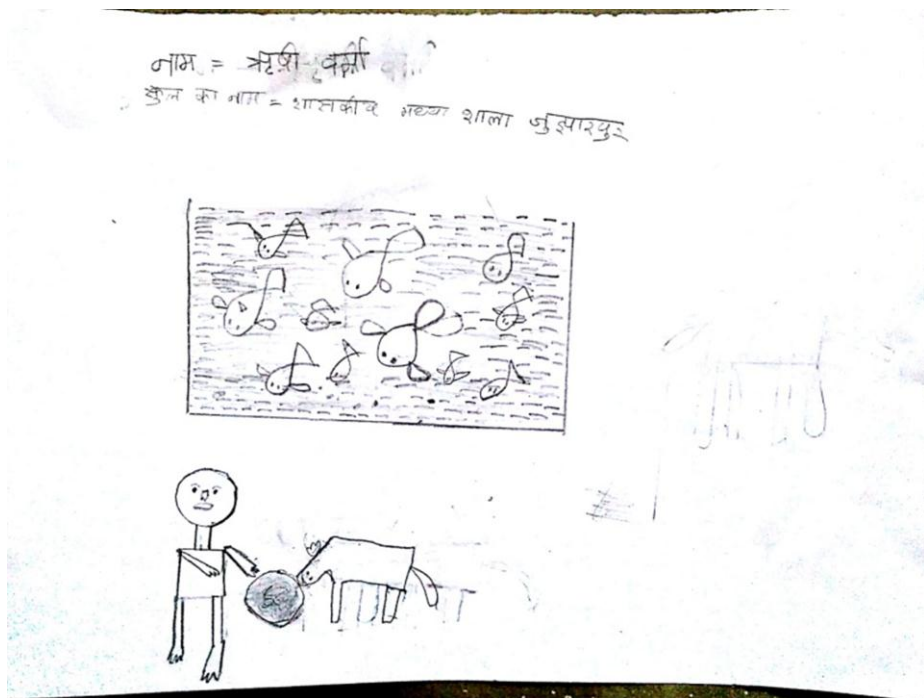 नाम = ऋषी वर्मा
स्कुल का नाम = शासकीय मध्या शाला जुझारपुर